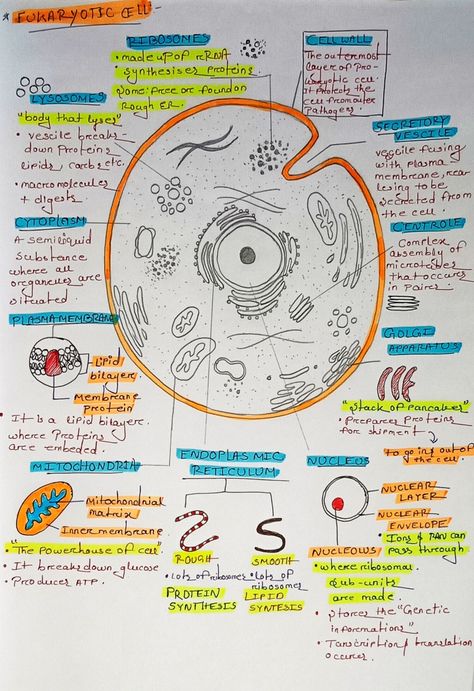 * EUKARYOTIC CELL-
RIBOSOMES
• made up of rRNA
synthesises proteins
Some: free are found on
Rough ER.
CELL WALL
The outermost
layer of Pro-
karyotic cell
it protects the
cell from outer
Pathogens
LYSOSOMES
"body that lyses"
• vescile breaks-
down Proteins
lipids, carbs etc.
• macromolecules
+ digests
SECRETORY
VESCILE
vescile fusing
with plasma
membrane, relea
lesing to be
secreted from
the cell
CYTOPLASM
A semiliquid
substance
where all
organelles are
situated
CENTROLE
Complex
assembly of
microtubles
that occurs
in Paires.
PLASMA MEMBRANE
Lipid
bilayer
Membrane
protein
• It is a lipid bilayer
where Proteins
are embeded.
GOLGI
APPARATUS
"Stack of Pancakes"
• Preparer Proteins
for shipment
to going out of
the cell.
MITOCHONDRIA
Mitochondrial
Matrix
Inner membrane
• "The Powerhouse of cell"
• It breaks down glucose
• Producer ATP.
ENDOPLASMIC
RETICULUM
ROUGH
• Lots of ribosomes
PROTEIN
SYNTHESIS
SMOOTH
• Lots of
ribosomes
LIPID
SYNTESIS
NUCLEUS
NUCLEAR
LAYER
NUCLEAR
ENVELOPE
• Ions & RNA can
pass through
NUCLEOUS
• where ribosomal
Sub-units
are made.
• Stores the "Genetic
informations"
• Transcription / translation
occures.